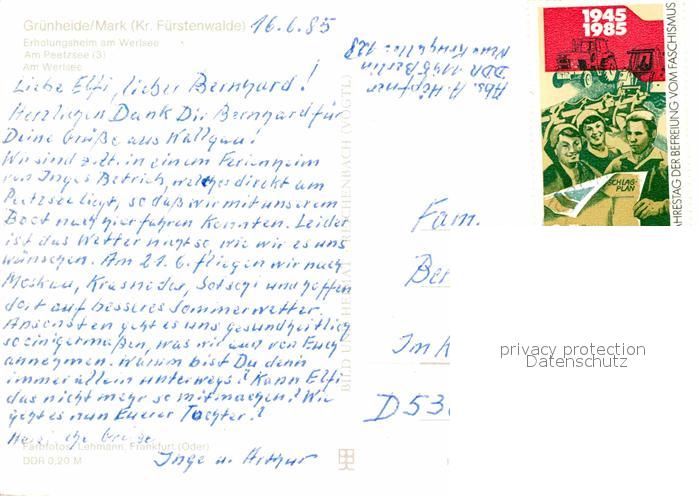 Grünheide/Mark (Kr. Fürstenwalde)
Erholungsheim am Werlsee
Am Peetzsee (3)
Am Werlsee
16.6.85
Liebe Elfi, lieber Bernhard!
Herzlichen Dank Dir Bernhard für
Deine Grüße aus Wallgau!
Wir sind z.Zt. in einem Ferienheim
von Inges Betrieb, welches direkt am
Peetzsee liegt, so daß wir mit unserem
Boot nach hier fahren konnten. Leider
ist das Wetter nicht so, wie wir es uns
wünschen. Am 21.6. fliegen wir nach
Moskau, Krasnodar, Sotschi und hoffen
dort auf besseres Sommerwetter.
Ansonsten geht es uns gesundheitlich
so einigermaßen, was wir auch von Euch
annehmen. Warum bist Du denn
immer allein unterwegs? Kann Elfi
das nicht mehr so mitmachen? Wie
geht es nun Eurer Tochter?
Herzliche Grüße
Inge u. Arthur
Farbfotos: Lehmann, Frankfurt (Oder)
DDR 0,20 M
BILD UND HEIMAT REICHENBACH (VOGTL)
Abs. A. Höpfner
DDR 1195 Berlin
128
1945
1985
SCHLAG-
PLAN
JAHRESTAG DER BEFREIUNG VOM FASCHISMUS
Fam.
Ber
Im
D 53
privacy protection
Datenschutz